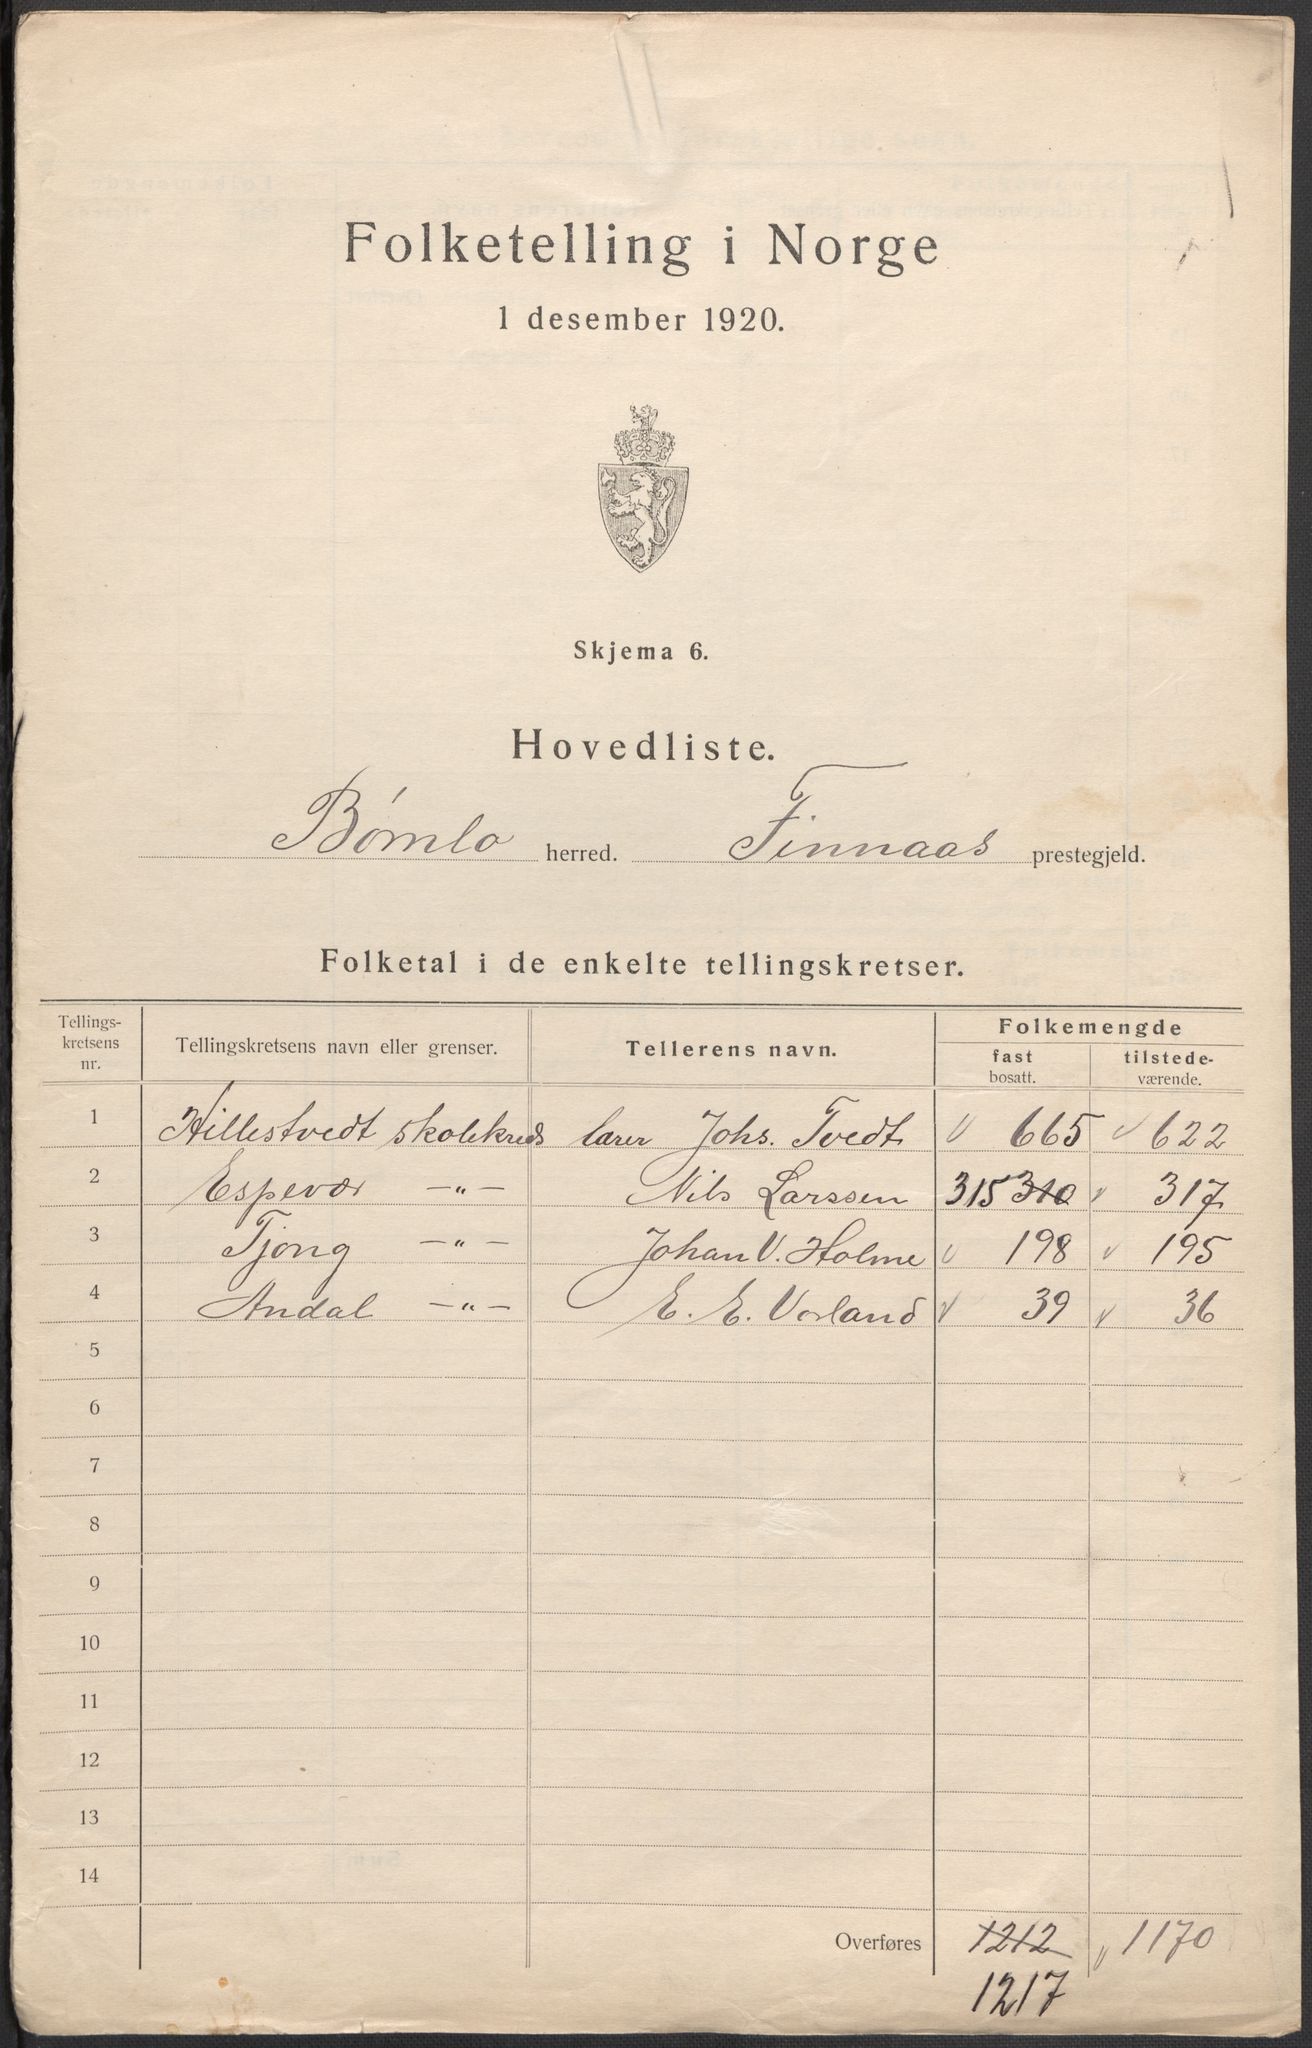 Folketelling i Norge
1 desember 1920.
Skjema 6.
Hovedliste.
Bømlo herred. Finnaas prestegjeld.
Folketal i de enkelte tellingskretser.
Tellings-kretsens nr. Tellingskretsens navn eller grenser. Tellerens navn. Folkemengde
fast bosatt. tilstede-værende.
1 Hillestvedt skolekreds lærer Johs. Tvedt 665 622
2 Espevær —"— Nils Larssen 315 310 317
3 Tjong —"— Johan V. Holme 198 195
4 Andal —"— E. E. Vorland 39 36
5
6
7
8
9
10
11
12
13
14
Overføres 1212 1170
1217